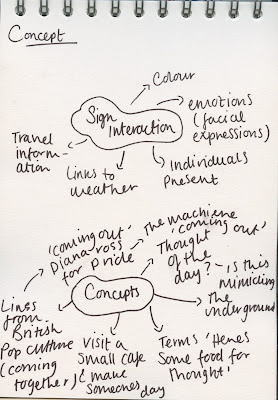 Concept
Colour
Sign
Interaction
emotions
(facial
expressions)
Travel
inform-
ation
Links to
weather
Individuals
Present
'coming out'
Diana-ross
for pride
The machiene
'coming out'
Thought
of the
day?
Is this
mimicing
The
underground
Concepts
Lines
from
British
Pop culture
(coming
together)
visit a
small cafe
& make
someones day
Terms 'Heres
Some food for
Thought'